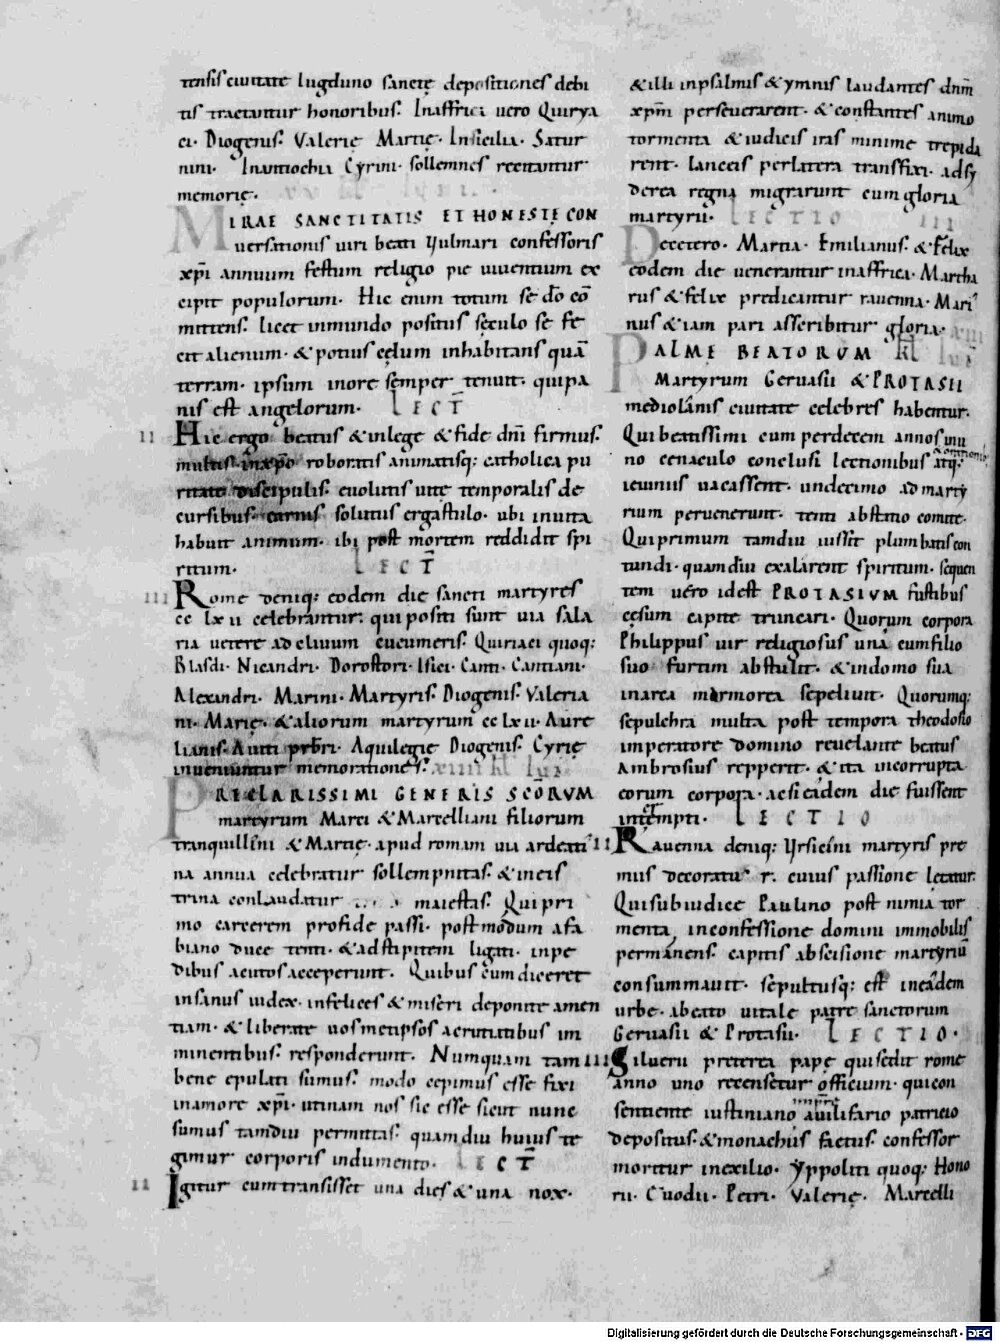 tensis ciuitate lugduno sanctę depositiones debi
tis tractantur honoribus. Inaffrica uero Quirya
ci. Diogenis. Valerię Martię. Insicilia. Satur
nini. Inantiochia Cyrini. sollemnes recitantur
memorię.
MIRAE SANCTITATIS ET HONESTĘ CON
uersationis uiri beati Yulmari confessoris
xpi annuum festum religio pie uiuentium ex
cipit populorum. Hic enim totum se dō cō
mittens. licet inmundo positus sęculo se fe
cit alienum. & potius cęlum inhabitans quā
terram. ipsum inore semper tenuit. qui pa
nis est angelorum. LECT̄
II Hic ergo beatus & inlege & fide dn̄i firmus.
multis inxp̄o roboratis animatisq; catholica pu
ritate discipulis. euolutis uitę temporalis de
cursibus. carnis solutus ergastulo. ubi inuita
habuit animum. ibi post mortem reddidit spi
ritum. LECT̄
III Rome deniq; eodem die sancti martyres
cc lxii celebrantur. qui positi sunt uia sala
ria uetere ad cliuum cucumeris. Quiriaci quoq;
Blasdi. Nicandri. Dorostori. Isici. Canti. Cantiani.
Alexandri. Marini. Martyris. Diogenis. Valeria
ni. Marię. & aliorum martyrum cc lxii. Aure
lianis. Auiti prb̄ri. Aquilegię Diogenis. Cyrię
inueniuntur memorationes. xiiii kl̄ iul̄
PRECLARISSIMI GENERIS SCŌRVM
martyrum Marci & Marcelliani filiorum
tranquillini & Martię. apud romam uia ardeati
na annua celebratur sollempnitas. & ineis
trina conlaudatur maiestas. Qui pri
mo carcerem profide passi. postmodum a fa
biano duce tenti. & adstipitem ligati. inpe
dibus acutos acceperunt. Quibus cum diceret
insanus iudex. infelices & miseri deponite amen
tiam. & liberate uosmetipsos a cruciatibus im
minentibus. responderunt. Numquam tam
bene epulati sumus. modo cepimus esse fixi
inamore xpi. utinam nos sic esse sicut nunc
sumus tamdiu permittas. quamdiu huius te
gimur corporis indumento. LECT̄
II Igitur cum transisset una dies & una nox.
& illi inpsalmis & ymnis laudantes dnm̄
xpm̄ perseuerarent. & constantes animo
tormenta & iudicis iras minime trepida
rent. lanceis perlatera transfixi. ad sy
derea regna migrarunt cum gloria
martyrii. LECTIO III
Decetero. Martia. Emilianus. & Felix
eodem die uenerantur inaffrica. Martha
rus & felix predicantur rauenna. Mari
nus & iam pari asscribitur gloria. xiii
PALME BEATORUM kl̄ iul̄
Martyrum Geruasii & PROTASII
mediolanis ciuitate celebres habentur.
Qui beatissimi cum perdecem annos inu
no cenaculo conclusi lectionibus atq; orationib;
ieiuniis uacassent. undecimo ad marty
rium peruenerunt. tenti ab stasio comite.
Qui primum tamdiu iussit plumbatis con
tundi. quamdiu exalarent spiritum. sequen
tem uero idest PROTASIVM fustibus
cęsum capite truncari. Quorum corpora
Philippus uir religiosus una cum filio
suo furtim abstulit. & indomo sua
inarca marmorea sepeliuit. Quorumq;
sepulchra multa post tempora theodosio
imperatore domino reuelante beatus
Ambrosius repperit. & ita incorrupta
eorum corpora. ac si eadem die fuissent
interempti. LECTIO
II Rauenna deniq; Ursicini martyris pre
mius decoratur. cuius passione lętatur.
Qui sub iudice Paulino post nimia tor
menta, inconfessione domini immobilis
permanens. capitis abscisione martyriū
consummauit. sepultusq; est ineadem
urbe. a beato uitale patre sanctorum
Geruasii & Protasii. LECTIO.
III Siluerii preterea papę qui sedit rome
anno uno recensetur officium. qui con
sentiente iustiniano impr̄e a uilisario patricio
depositus. & monachus factus. confessor
moritur inexilio. Yppoliti quoq; Hono
rii. Euodii. Petri. Valerię. Marcelli
Digitalisierung gefördert durch die Deutsche Forschungsgemeinschaft - DFG